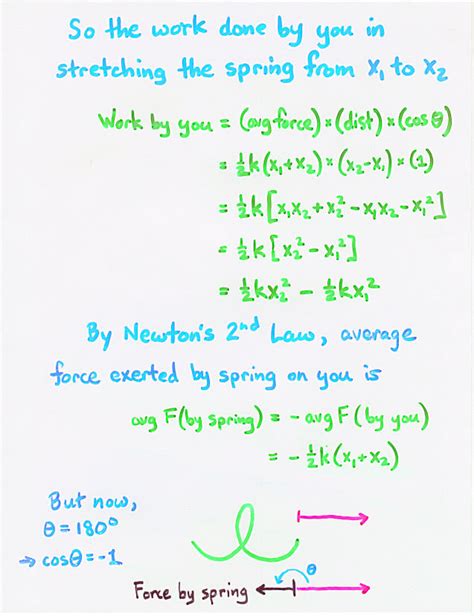 So the work done by you in
stretching the spring from x₁ to x₂
Work by you = (avg force) × (dist) × (cos θ)
= ½k(x₁+x₂) × (x₂-x₁) × (1)
= ½k[x₁x₂+x₂²-x₁x₂-x₁²]
= ½k[x₂²-x₁²]
= ½kx₂² - ½kx₁²
By Newton's 2nd Law, average
force exerted by spring on you is
avg F(by spring) = - avg F(by you)
= -½k(x₁+x₂)
But now,
θ = 180°
→ cosθ = -1
θ
Force by spring